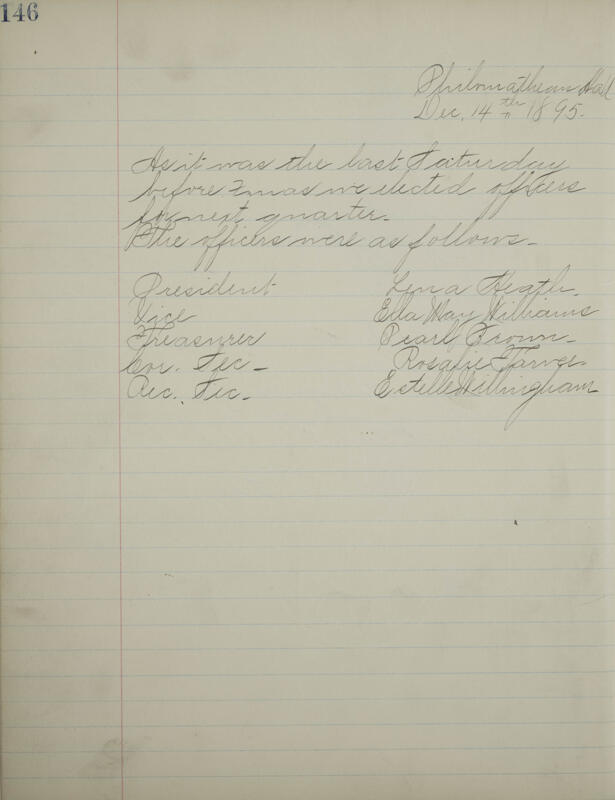 146
Philomathean Hall
Dec. 14th 1895.
As it was the last Saturday
before Xmas we elected officers
for next quarter.
The officers were as follows-
President Lena Heath.
Vice Ella May Williams
Treasurer Pearl Brown-
Cor. Sec- Rosalie
Rec. Sec- Estelle Willingham